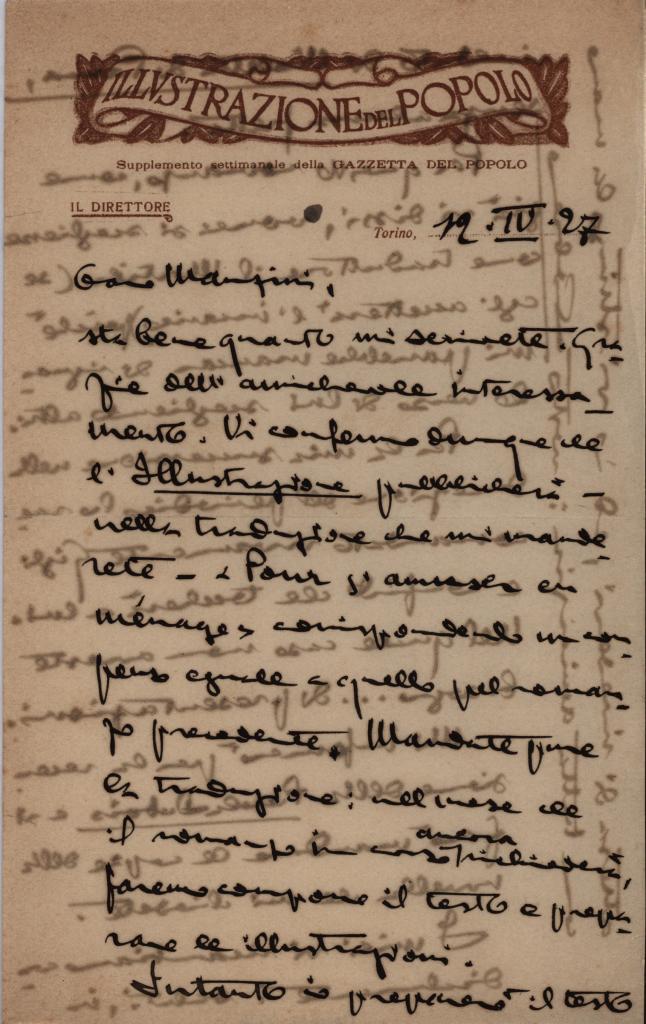 ILLVSTRAZIONE DEL POPOLO
Supplemento settimanale della GAZZETTA DEL POPOLO
IL DIRETTORE
Torino, 12.IV.27
Caro Manzini,
sta bene quanto mi scrivete. Gra-
zie dell'amichevole interessa-
mento. Vi confermo dunque che
l'Illustrazione pubblicherà –
nella traduzione che mi mande-
rete – « Pour s'amuser en
ménage » corrispondendo un com-
penso eguale a quello pel roman-
zo precedente. Mandate pure
la traduzione: nel mese che
il romanzo in corso ancora richiederà,
faremo comporre il testo e prepa-
rare le illustrazioni.
Intanto io preparerò il testo